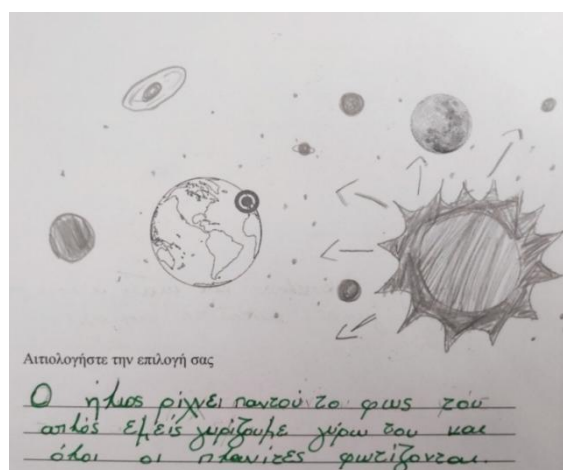 Αιτιολογήστε την επιλογή σας
Ο ήλιος ρίχνει παντού το φως του
απλός εμείς γυρίζουμε γύρω του και
όλοι οι πλανίτες φωτίζονται.